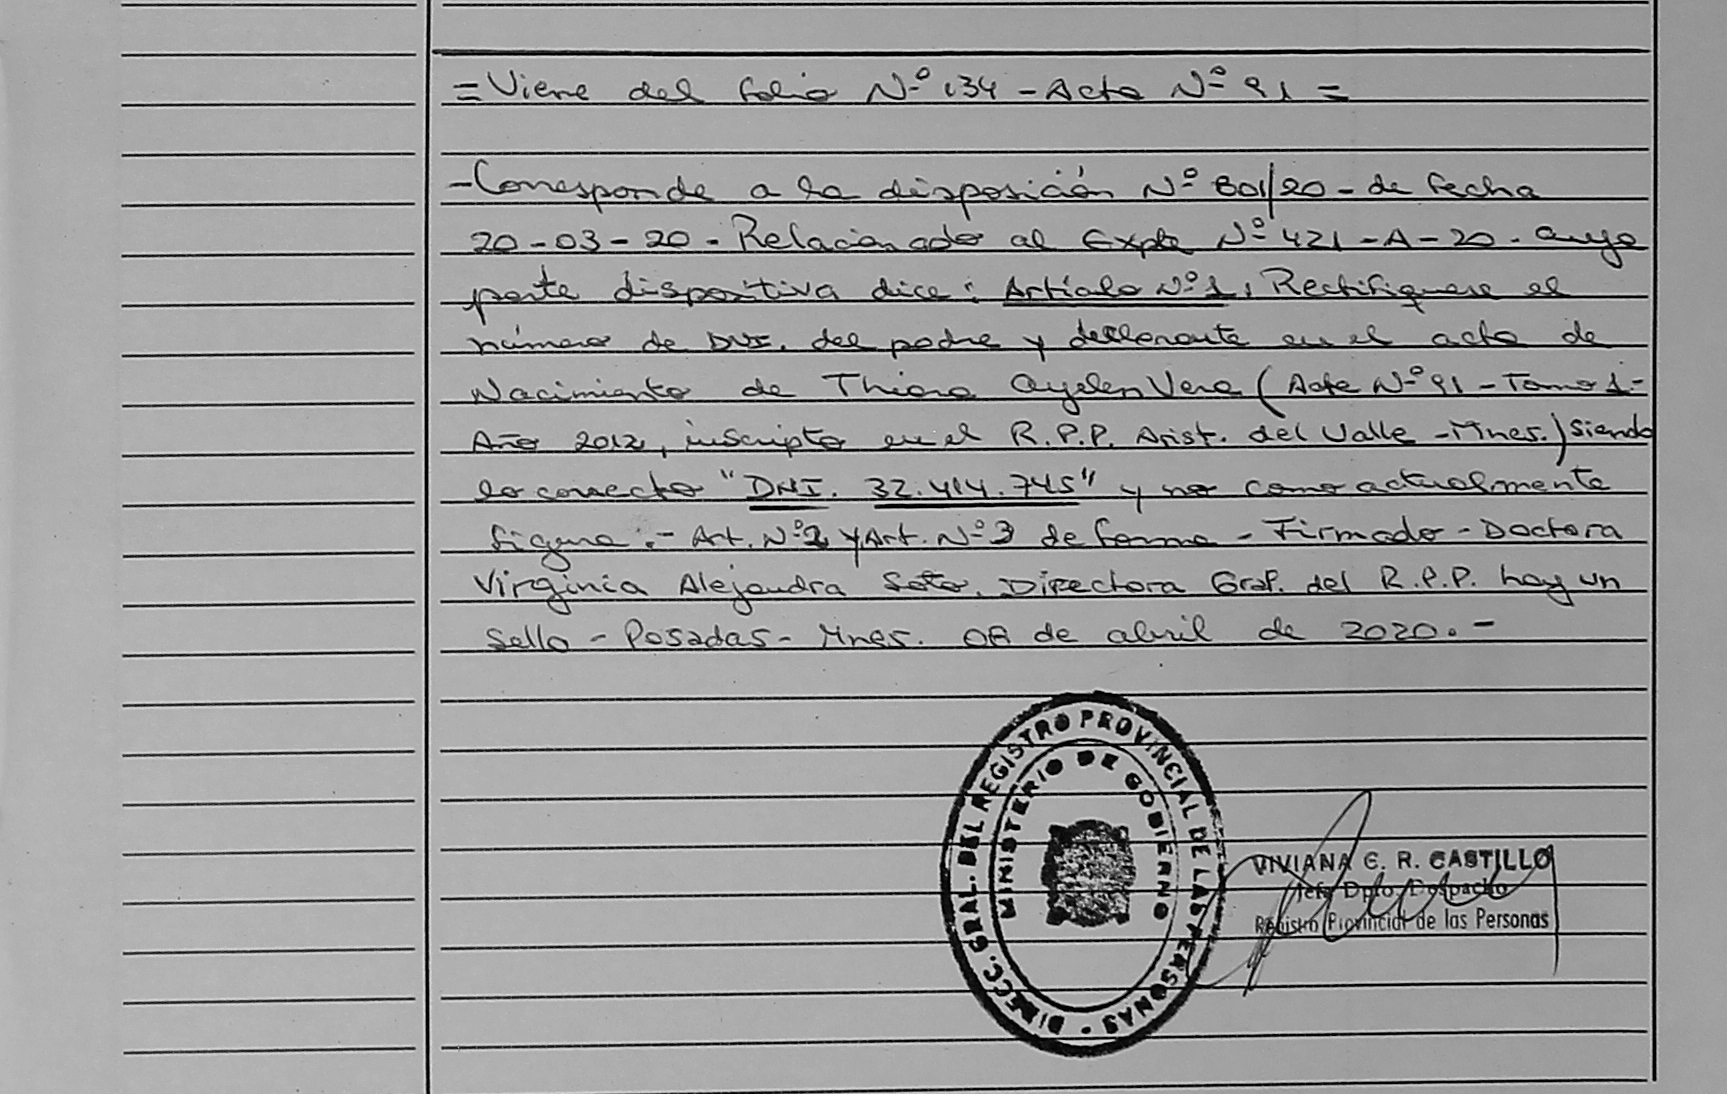 =Viene del folio Nº 134 - Acta Nº 91 =
-Corresponde a la disposición Nº 801/20 - de fecha
20-03-20 - Relacionado al Expte Nº 421-A-20. cuya
parte dispositiva dice: Artículo Nº1, Rectifiquese el
número de DNI. del padre y declarante en el acta de
Nacimiento de Thiara Ayelen Vera (Acta Nº 91 - Tomo 1-
Año 2012, inscripto en el R.P.P. Arist. del Valle - Mnes.) siendo
lo correcto "DNI. 32.414.745" y no como actualmente
figura.- Art. Nº2 y Art. Nº3 de forma - Firmado - Doctora
Virginia Alejandra Soto. Directora Gral. del R.P.P. hay un
Sello - Posadas - Mnes. 08 de abril de 2020.-
DIRECC. GRAL. DEL REGISTRO PROVINCIAL DE LAS PERSONAS -
MINISTERIO DE GOBIERNO
VIVIANA C. R. CASTILLO
Jefa Dpto. Despacho
Registro Provincial de las Personas